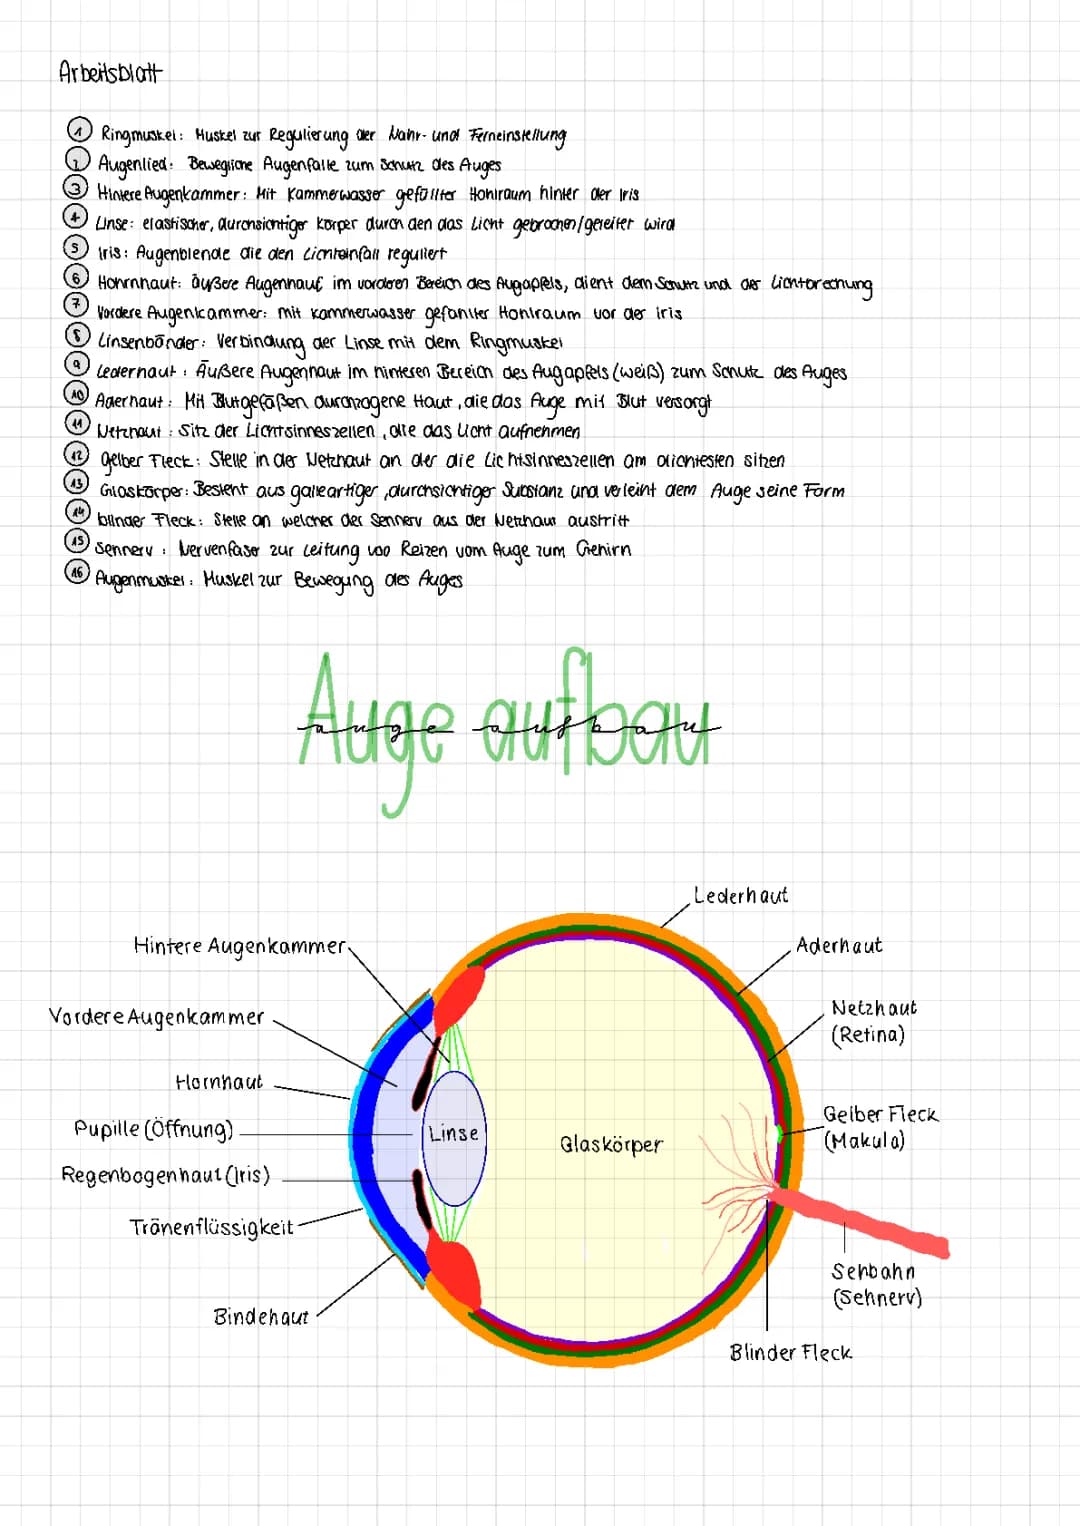 Arbeitsblatt
1 Ringmuskel: Muskel zur Regulierung der Nahr- und Ferneinstellung
2 Augenlied: Bewegliche Augenfalle zum Schutz des Auges
3 Hintere Augenkammer: Mit Kammerwasser gefüllter Hohlraum hinter der Iris
4 Linse: elastischer, durchsichtiger Körper durch den das Licht gebrochen/geleitet wird
5 Iris: Augenblende die den Lichteinfall reguliert
6 Hohrnhaut: äußere Augenhaut im vorderen Bereich des Augapfels, dient dem Schutz und der Lichtbrechung
7 Vordere Augenkammer: mit Kammerwasser gefühlter Hohlraum vor der Iris
8 Linsenbänder: Verbindung der Linse mit dem Ringmuskel
9 Lederhaut: Äußere Augenhaut im hinteren Bereich des Augapfels (weiß) zum Schutz des Auges
10 Aderhaut: Mit Blutgefäßen durchzogene Haut, die das Auge mit Blut versorgt
11 Netzhaut: Sitz der Lichtsinneszellen, die das Licht aufnehmen
12 gelber Fleck: Stelle in der Netzhaut an der die Lichtsinneszellen am dichtesten sitzen
13 Glaskörper: Besteht aus gallertartiger, durchsichtiger Substanz und verleiht dem Auge seine Form
14 blinder Fleck: Stelle an welcher der Sehnerv aus der Netzhaut austritt
15 Sehnerv: Nervenfaser zur Leitung von Reizen vom Auge zum Gehirn
16 Augenmuskel: Muskel zur Bewegung des Auges
Auge aufbau
auge aufbau
Lederhaut
Hintere Augenkammer
Aderhaut
Vordere Augenkammer
Netzhaut
(Retina)
Hornhaut
Gelber Fleck
(Makula)
Pupille (Öffnung)
Linse
Glaskörper
Regenbogenhaut (Iris)
Tränenflüssigkeit
Sehbahn
(Sehnerv)
Bindehaut
Blinder Fleck